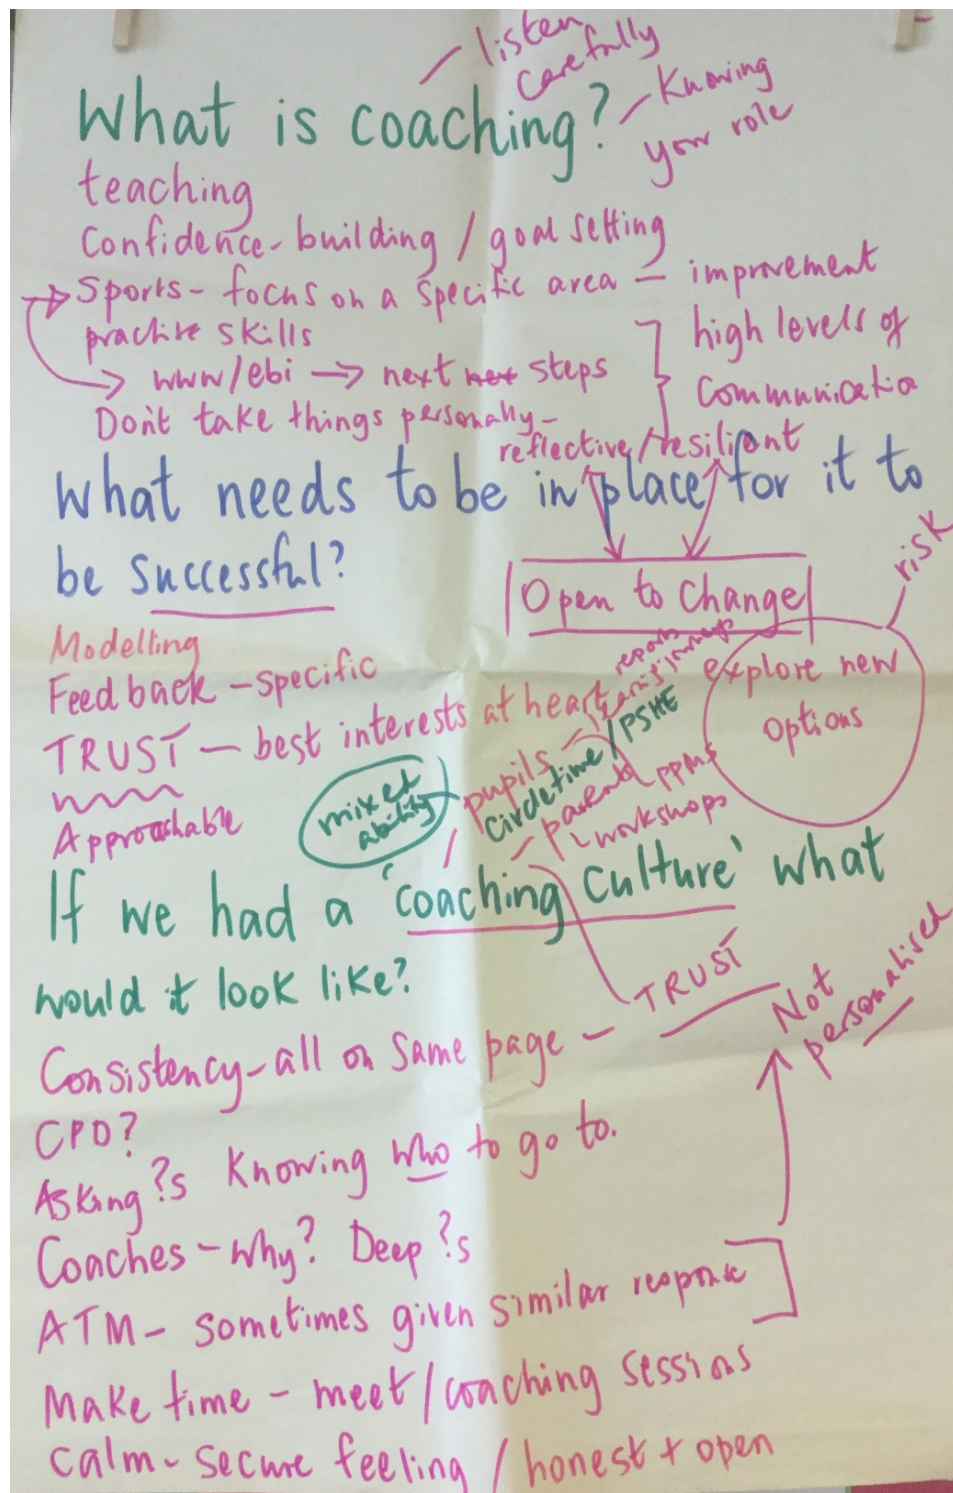 listen
carefully
What is coaching?
Knowing
your role
teaching
Confidence - building / goal setting
Sports - focus on a specific area - improvement
practise skills
high levels of
www/ebi → next steps
communicatio
Don't take things personally -
reflective/resilient
What needs to be in place for it to
be successful?
Open to Change
risk
explore new
options
Modelling
Feedback - specific
TRUST - best interests at heart
Approachable
mixed
ability
reports
pupils
circle time/PSHE
parents
PPMs
workshops
If we had a 'coaching culture' what
would it look like?
TRUST
Not
personalised
Consistency - all on same page -
CPD?
Asking ?s Knowing who to go to.
Coaches - Why? Deep ?s
ATM - sometimes given similar response
Make time - meet/coaching sessions
Calm - secure feeling / honest + open